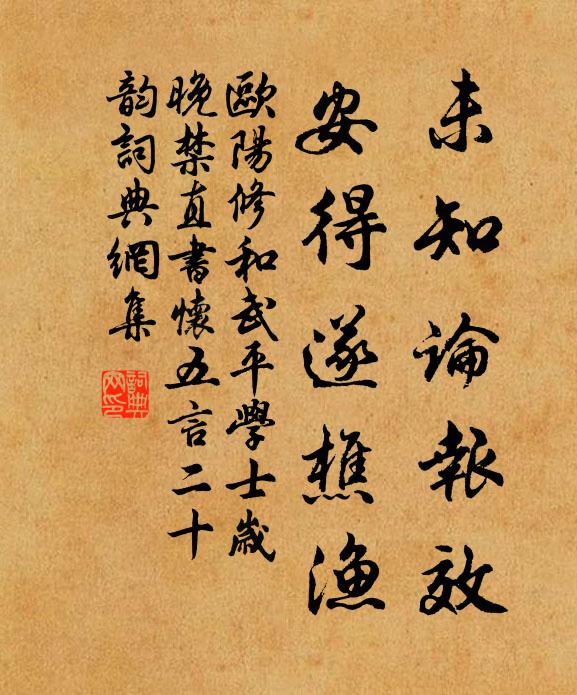 未知論報效
安得遂樵漁
歐陽修和武平學士歲
晚禁直書懷五言二十
韵詞典網集
詞典
网印